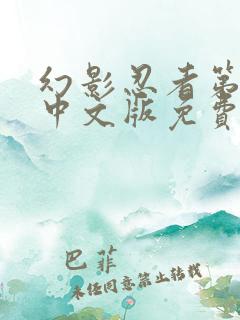 幻影忍者第
中文版免費
巴菲
未经同意禁止转载